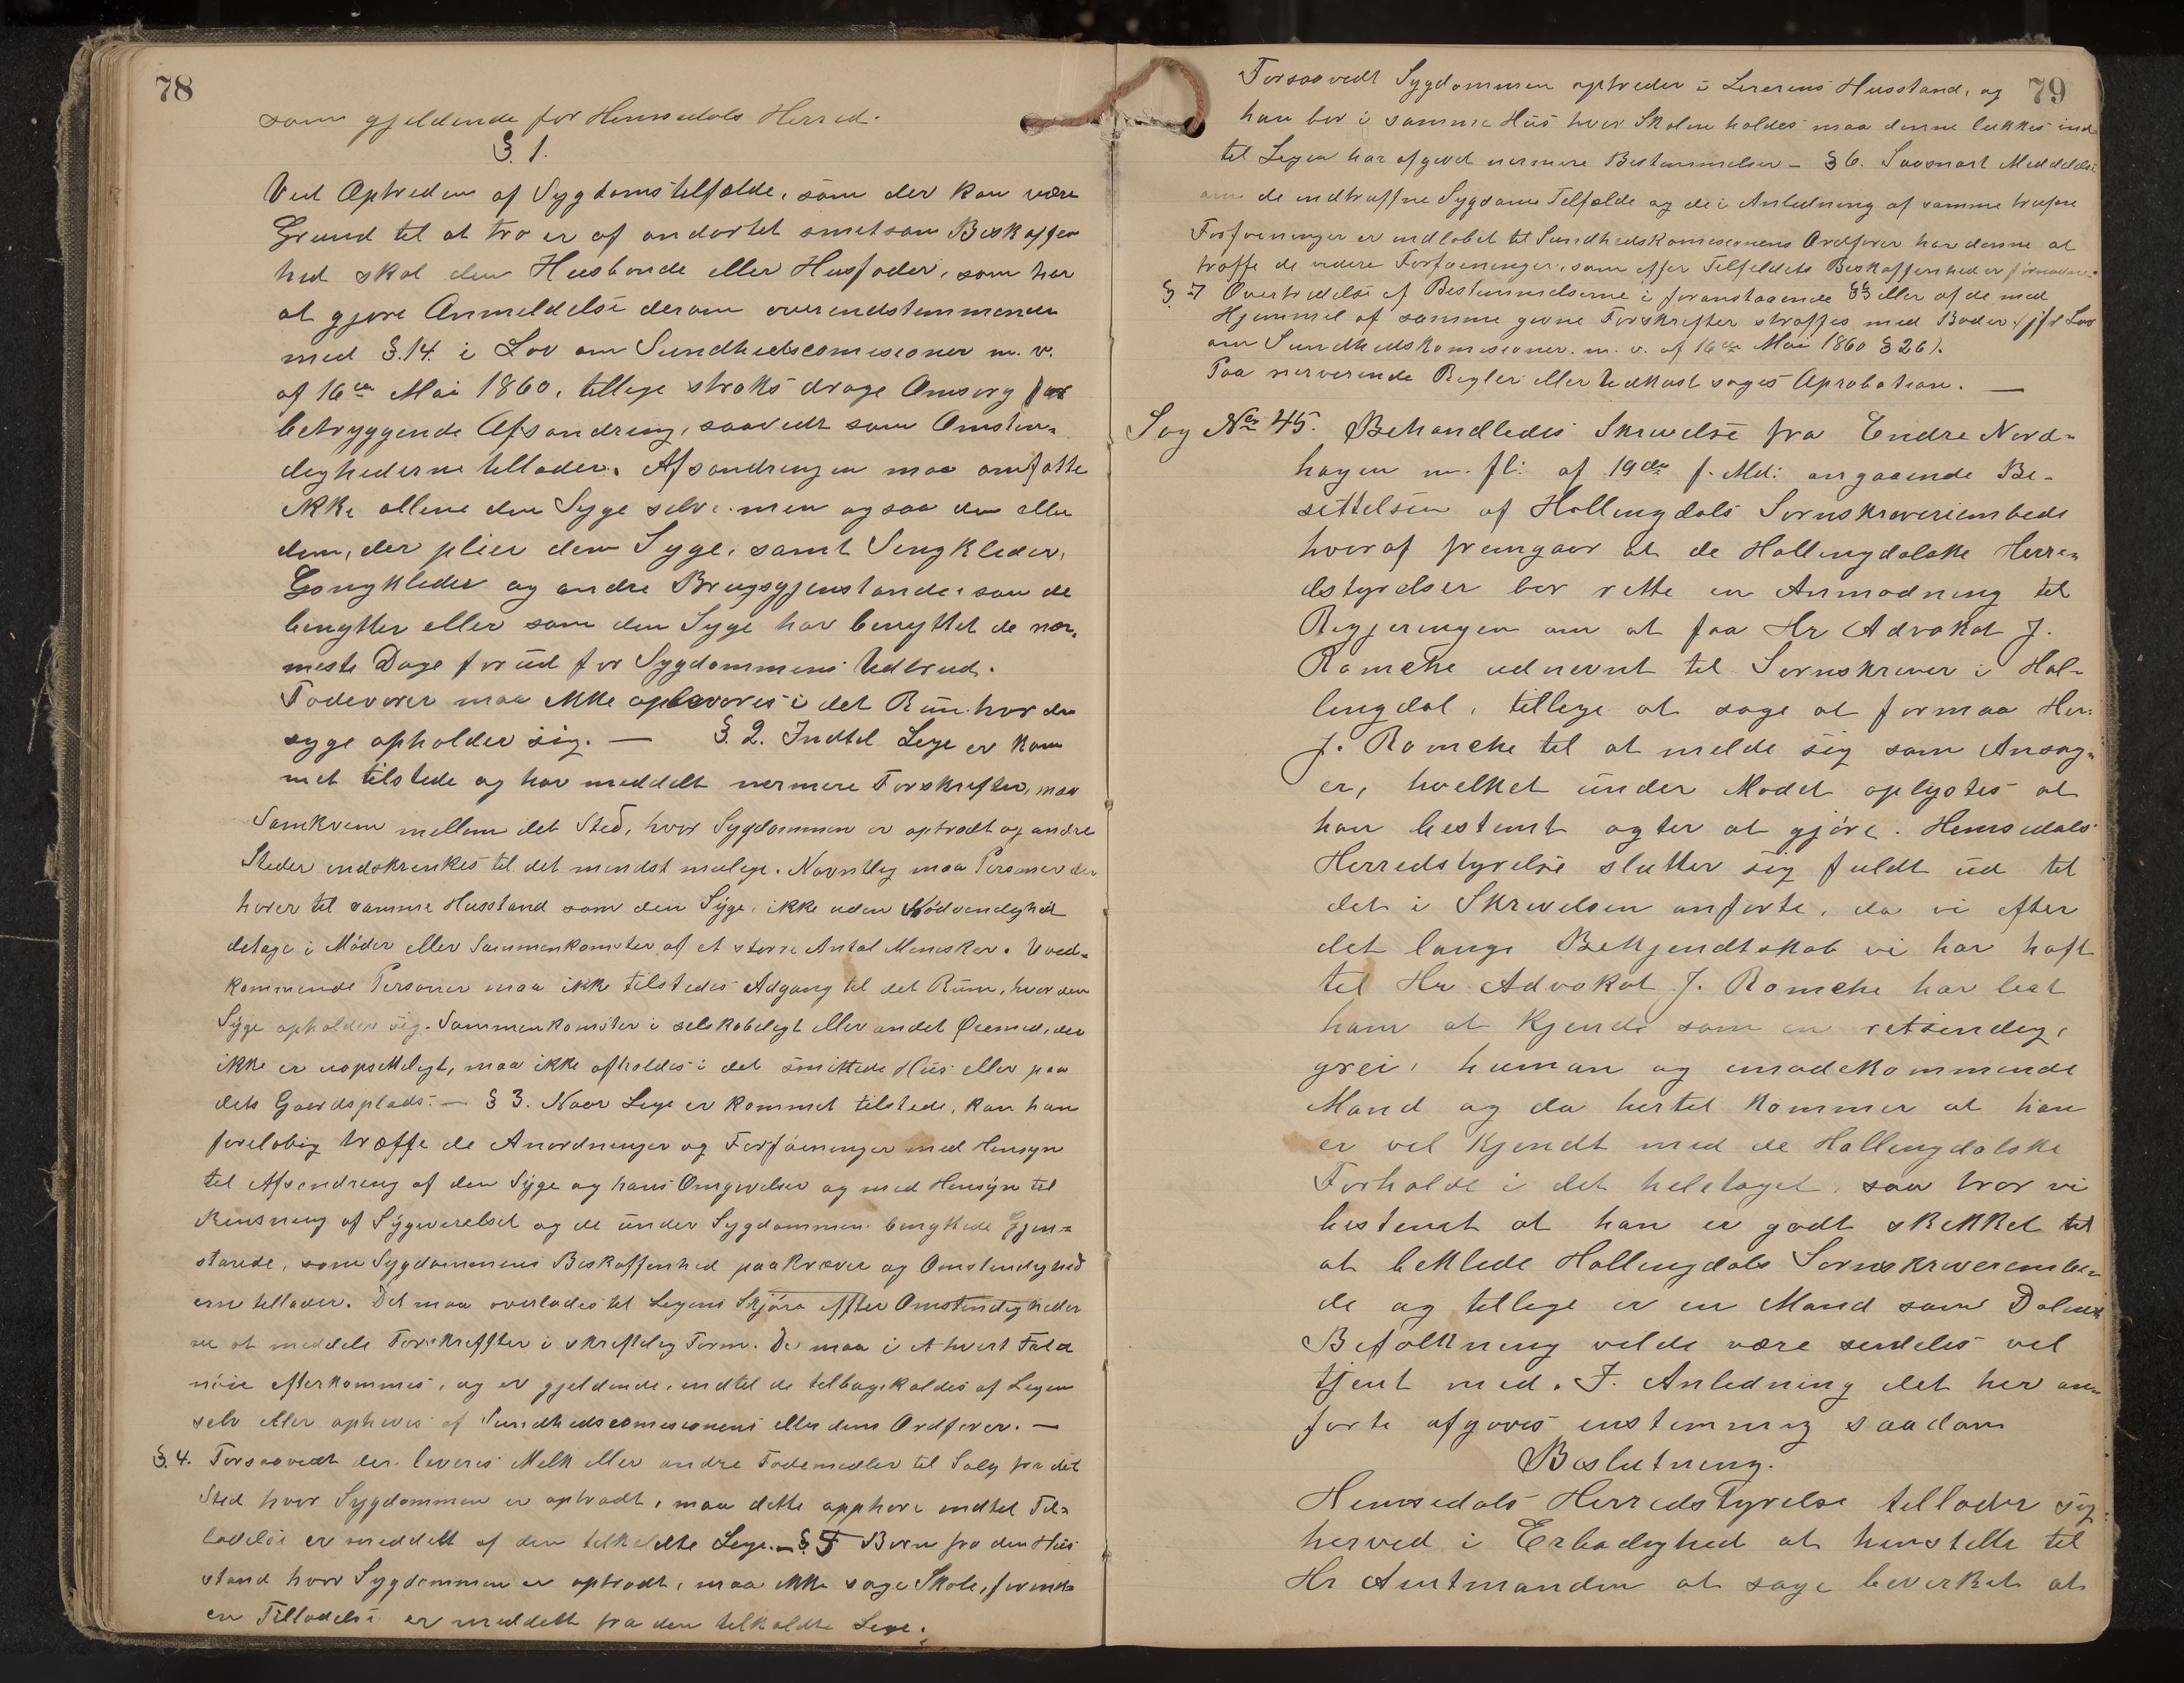 78
som gjeldende for Hemsedals Herred.
§. 1.
Ved Optreden af Sygdomstilfælde, som der kan være
Grund til at tro er af ondartet smitsom Beskaffen
hed skal den Husbonde eller Husfader, som har
at gjøre Anmeldelse derom overendstemmende
med §. 14. i Lov om Sundhedscomisioner m. v.
af 16de Mai 1860, tillige straks drage Omsorg for
betryggende Afsondring, saavidt som Omsten-
dighederne tillader. Afsondringen maa omfatte
ikke allene den Syge selv. men ogsaa den eller
dem, der pleier den Syge, samt Sengkleder,
Gangkleder og andre Brugsgjenstande, som de
benytter eller som den Syge har benyttet de nær-
meste Dage forud for Sygdommens Udbrud.
Fødevarer maa ikke opbevares i det Rum hvor den
syge opholder sig. — §. 2. Indtil Lege er kom
met tilstede og har meddelt nermere Forskrifter, maa
Samkvem mellem det Sted, hvor Sygdommen er optrædt og andre
Steder indskrenkes til det mindst mulige. Navnlig maa Personer der
hører til samme Husstand som den Syge, ikke uden Nødvendighed
deltage i Møder eller Sammenkomster af et større Antal Mennisker. Uved-
kommende Personer maa ikke tilstedes Adgang til det Rum, hvor den
Syge opholder sig. Sammenkomster i selskabeligt eller andet Øiemed, der
ikke er uopsetteligt, maa ikke afholdes i det smittede Hus eller paa
dets Gaardsplads. — § 3. Naar Lege er kommet tilstede, kan han
foreløbig træffe de Anordninger og Forføininger med Hensyn
til Afsondring af den Syge og hans Omgivelser og med Hensyn til
Rensning af Sygeverelset og de under Sygdommen benyttede Gjen-
stande, som Sygdommens Beskaffenhed paakræver og Omstendighed
erne tillader. Det maa overlades til Legens Skjøn efter Omstendigheder
ne at meddele Forskriffter i skriftelig Form. De maa i et hvert Fald
nøie efterkommes, og er gjeldende, indtil de tilbagekaldes af Legen
selv eller opheves af Sundhedscomisionens eller dens Ordfører. —
§. 4. Forsaavidt der leveres Melk eller andre Fødemidler til Salg fra det
Sted hvor Sygdommen er optrædt, maa dette opphøre indtil Til-
ladelse er meddelt af den tilkaldte Lege. — §. 5 Børn fra den Hus
stand hvor Sygdommen er optrædt, maa ikke søge Skole, førend
en Tilladelse er meddelt fra den tilkaldte Lege.
79
Forsaavidt Sygdommen optreder i Lererens Husstand, og
han bor i samme Hus hvor Skolen holdes maa denne lukkes ind
til Legen har afgivet nermere Bestemmelser — § 6. Saasnart Meddelelse
om de indtrufne Sygdoms Tilfælde og de i Anledning af samme trufne
Forføeninger er indløbet til Sundhedskomisionens Ordfører har denne at
træffe de videre Forføeninger, som efter Tilfeldets Beskaffenhed er fornødne.
§. 7 Overtredelse af Bestemmelserne i foranstaaende §§ eller af de med
Hjemmel af samme givne Forskrifter straffes med Bøder. (jfr Lov
om Sundhedskomisioner. m. v. af 16de Mai 1860 § 26).
Paa nerverende Regler eller Udkast søges Aprobation. —
Sag No 45. Behandledes Skrivelse fra Endre Nord-
hagen m. fl. af 19de f. Md. angaaende Be-
settelsen af Hallingdals Sornskriveriembede
hvoraf fremgaar at de Hallingdalske Herre-
dstyrelser bør rette en Anmodning til
Regjeringen om at faa Hr Advokat J.
Romcke udnevnt til Sornskriver i Hal-
lingdal, tillige at søge at formaa Her.
J. Romcke til at melde sig som Ansøg-
er, hvilket under Mødet oplystes at
han bestemt agter at gjøre. Hemsedals
Herredstyrelse slutter sig fuldt ud til
det i Skrivelsen anførte, da vi efter
det lange Bekjendtskab vi har haft
til Hr Advokat J. Romcke har lert
ham at kjende som en retsindig,
grei, human og imødekommende
Mand og da hertil kommer at han
er vel kjendt med de Hallingdalske
Forholde i det heletaget, saa tror vi
bestemt at han er godt skikket til
at beklede Hallingdals Sornskriverembe-
de og tillige er en Mand som Dalens
Befolkning vilde være serdeles vel
tjent med. I. Anledning det her an-
førte afgoves enstemmig saadan
Beslutning.
Hemsedals Herredstyrelse tillader sig
herved i Erbødighed at henstille til
Hr Amtmanden at søge bevirket at